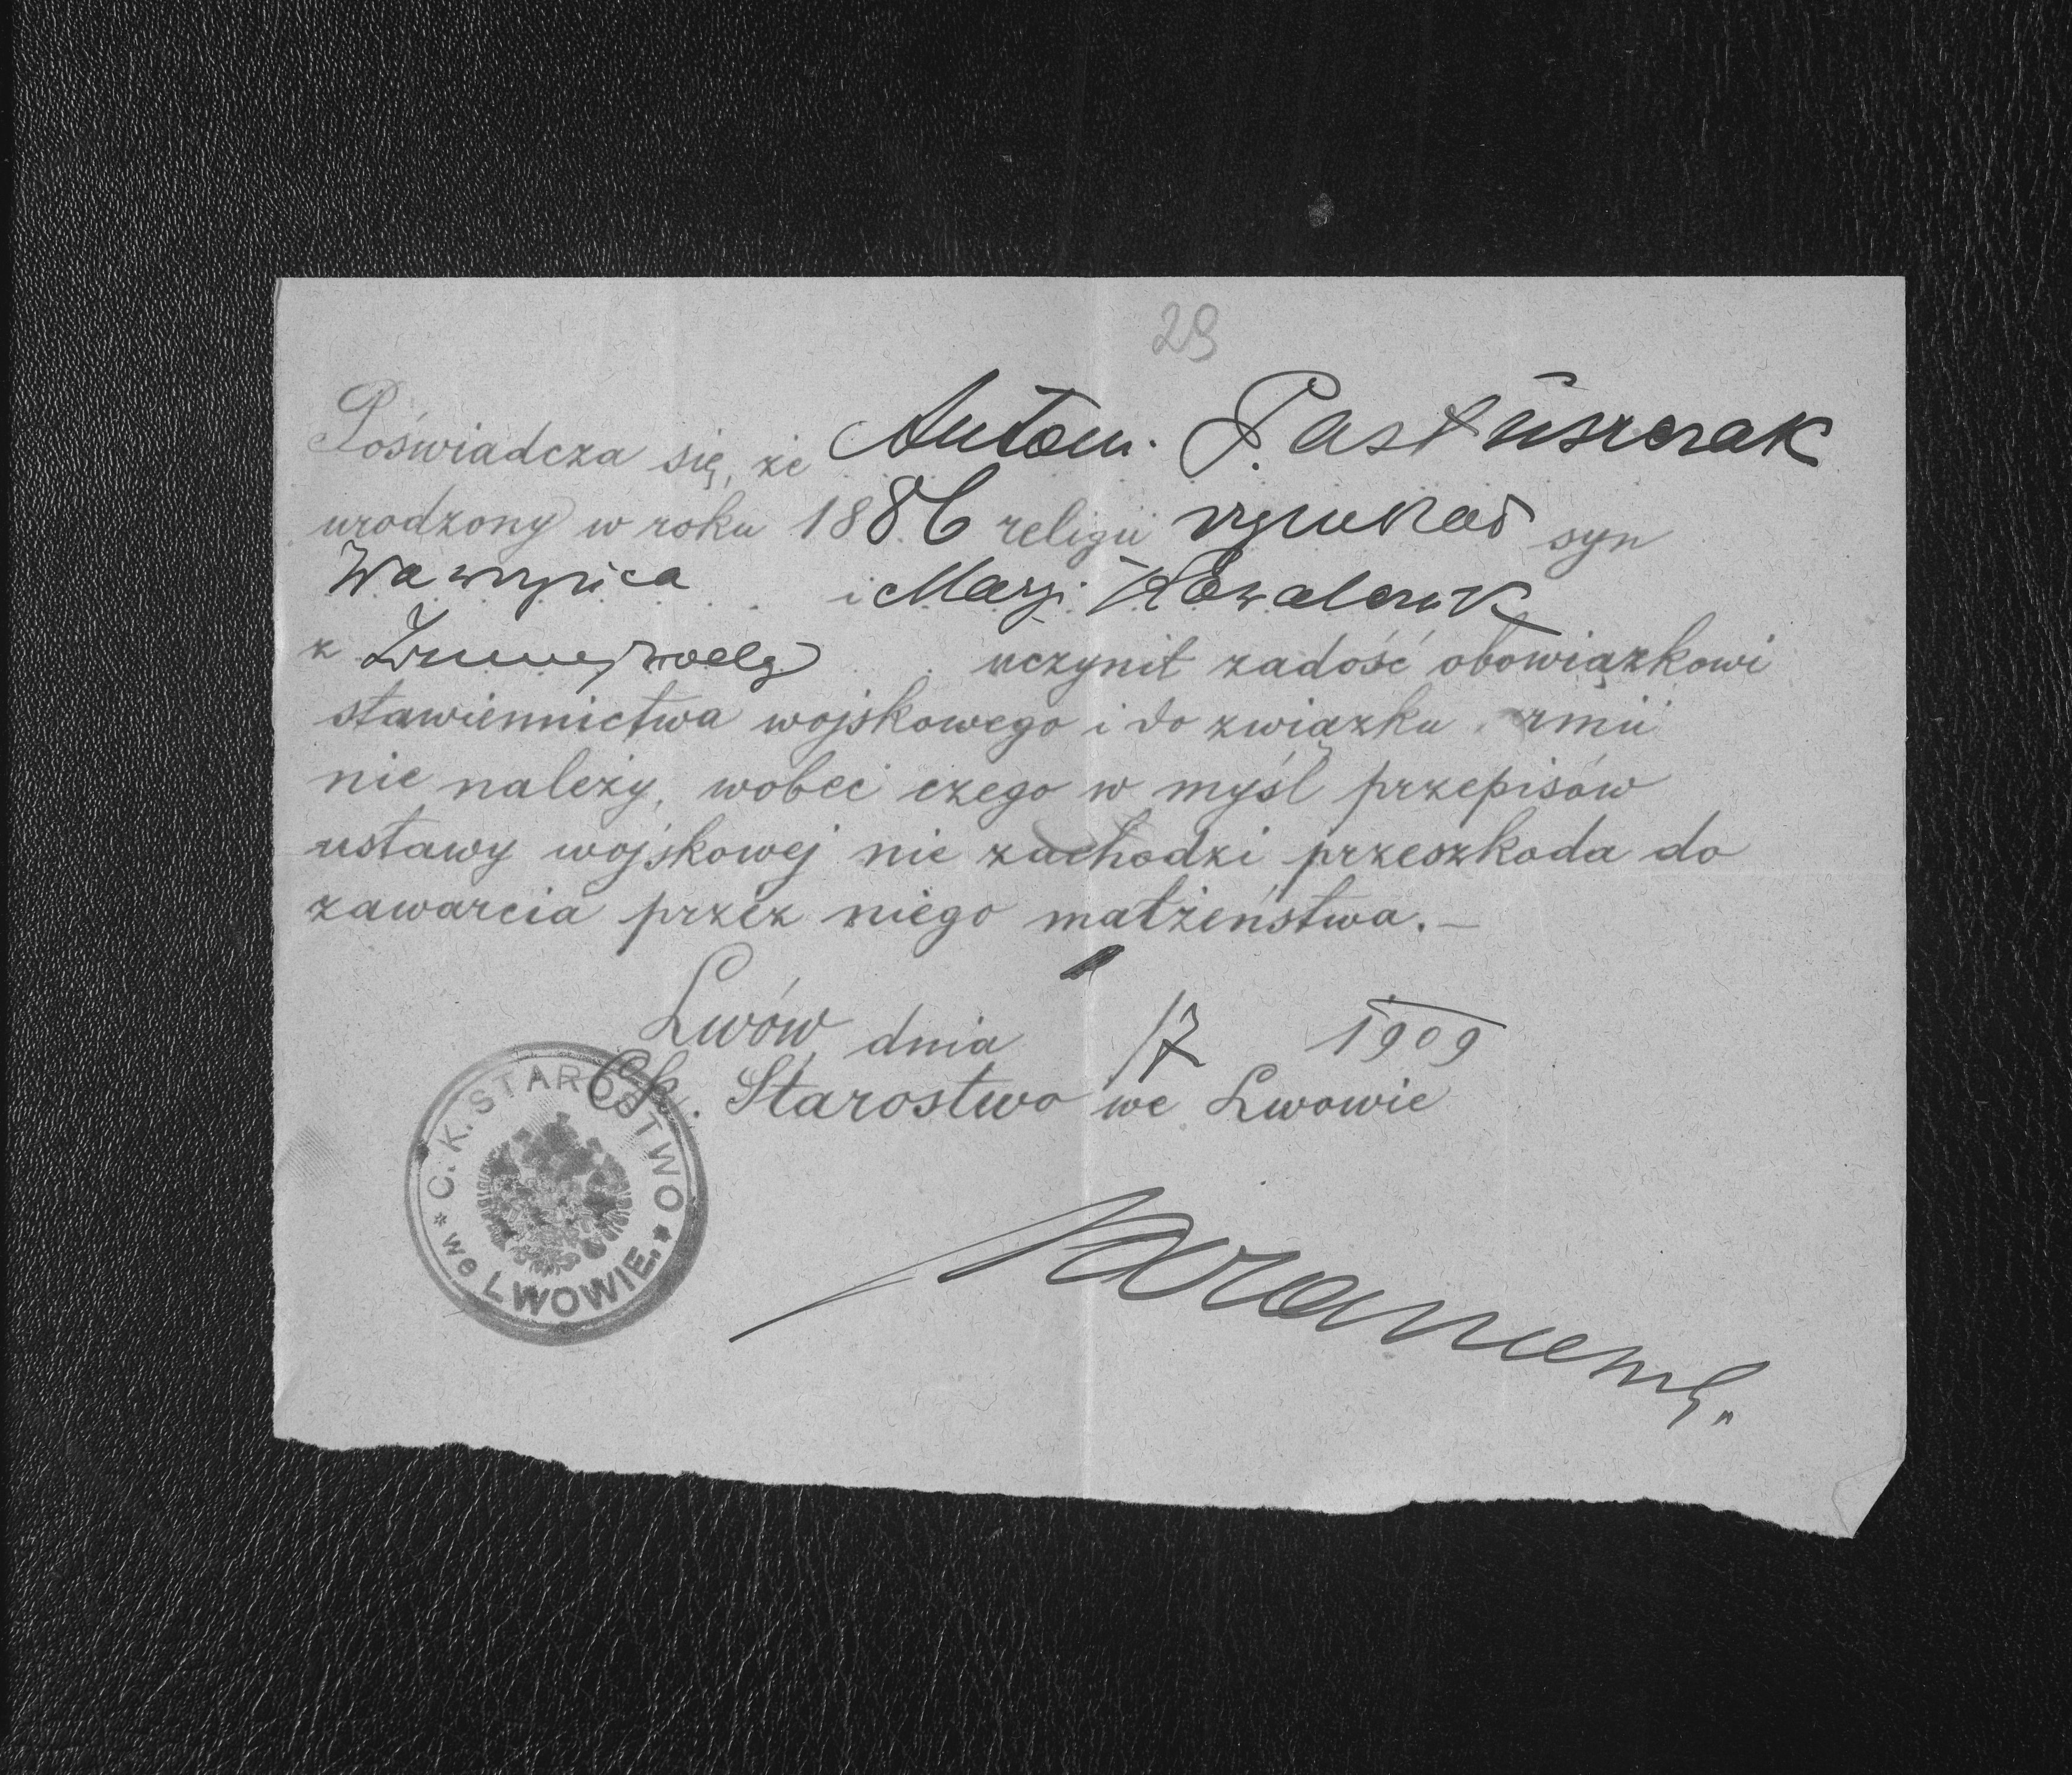 29
Poświadcza się, że Antoni Pastuszczak
urodzony w roku 1886 religii rzym kat syn
Wawrzyńca i Maryi Kowalczuk
z Zimnejwody uczynił zadość obowiązkowi
stawiennictwa wojskowego i do związku armii
nie należy, wobec czego w myśl przepisów
ustawy wojskowej nie zachodzi przeszkoda do
zawarcia przez niego małżeństwa.—
Lwów dnia /7 1909
C.k. Starostwo we Lwowie
* C. K. STAROSTWO * we LWOWIE.